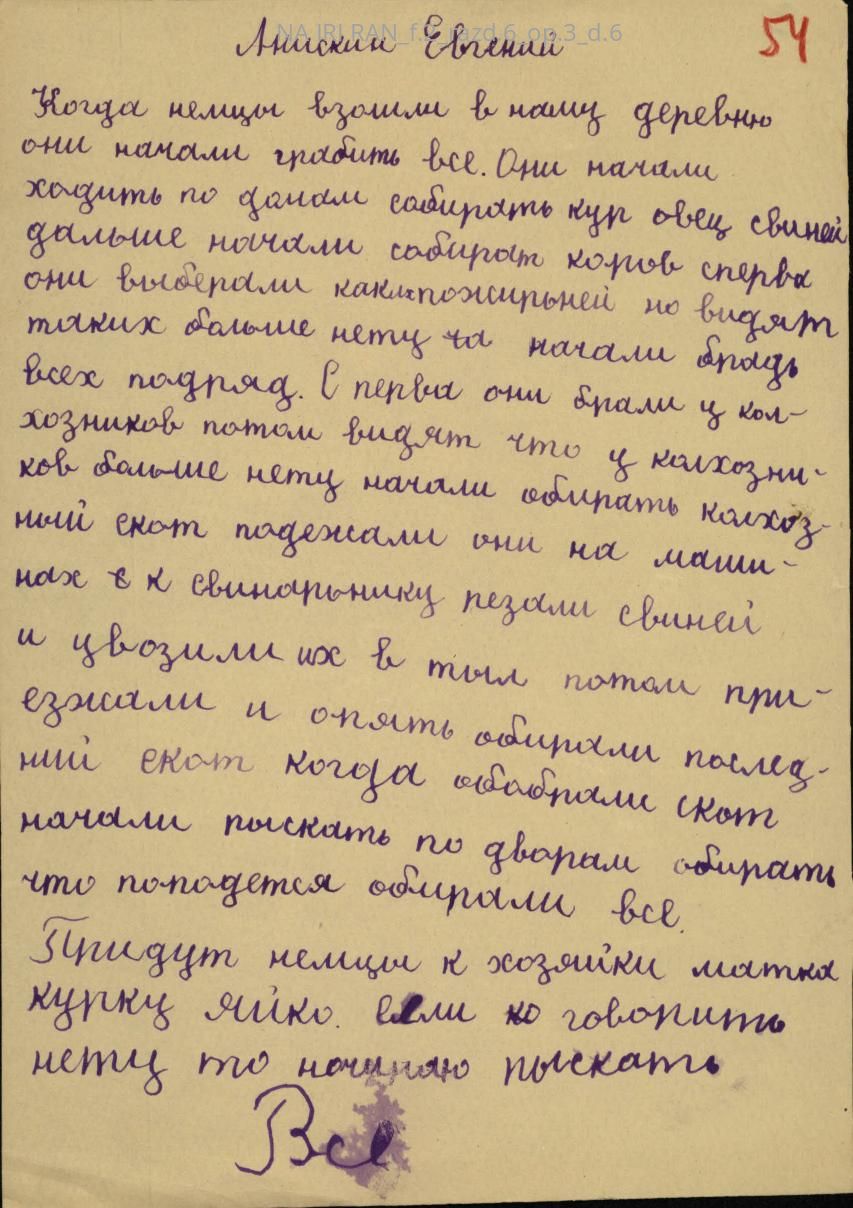 NA IRI RAN_f.2_razd.6_op.3_d.6
54
Анискин Евгений
Когда немцы взошли в нашу деревню
они начали грабить все. Они начали
ходить по домам собирать кур овец свиней
дальше начали собират коров сперва
они выберали каких пожирьней но видят
таких больше нету та начали брадь
всех подряд. С перва они брали у кол-
хозников потом видят что у колхозни-
ков больше нету начали обирать колхоз-
ный скот подежали они на маши-
нах к свинарьнику резали свиней
и увозили их в тыл потом при-
езжали и опять обирали послед-
ний скот когда обобрали скот
начали рыскать по дворам обирать
что попадется обирали все.
Придут немцы к хозяйки матка
курку яйко. Если говорить
нету то начинаю рыскать
Все